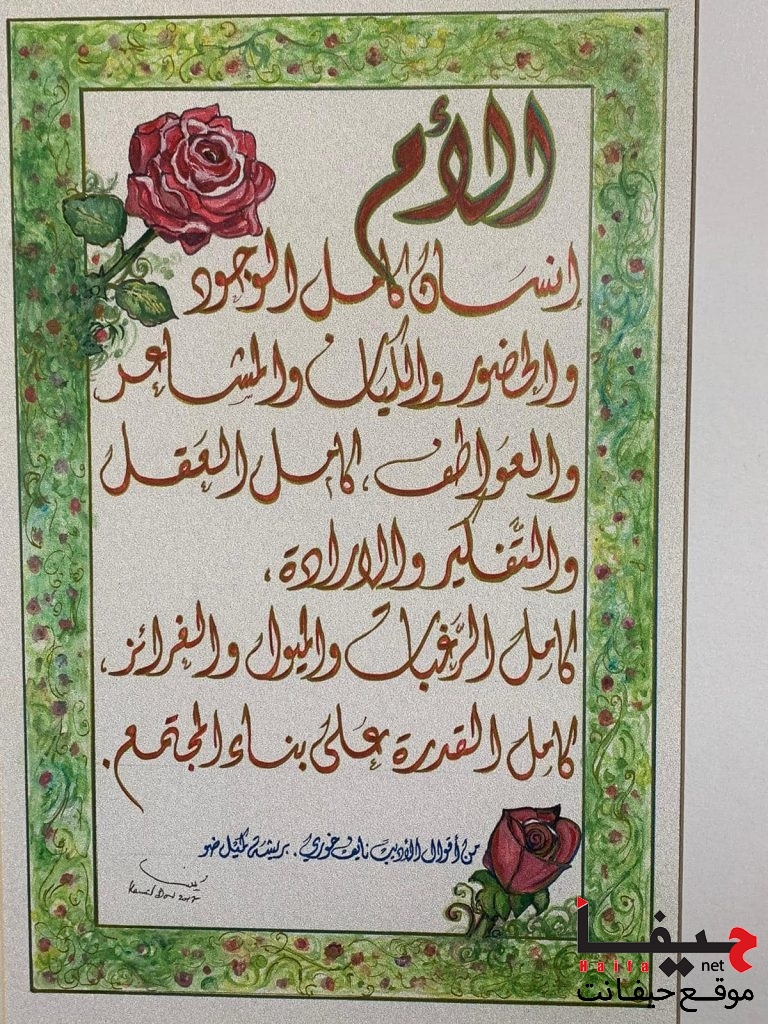 الأم
إنسانٌ كامل الوجود
والحضور والكيان والمشاعر
والعَواطف، كامل العَقل
والتَّفكير والارادة،
كامِل الرَّغبات والميول والغرائز،
كامِل القدرة على بناء المجتمع.
من أقوال الأديب نايف خوري. بريشة كميل ضو
Kamil Dow 2017
حيفا
Haifa net
موقع حيفانت